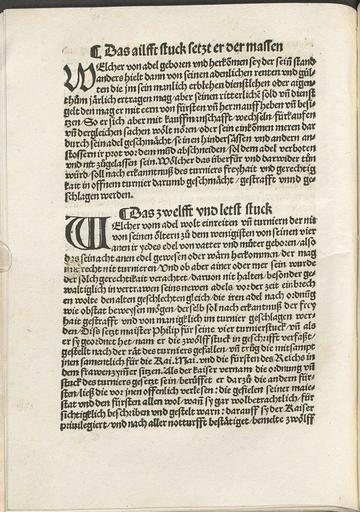 ¶ Das ailfft stuck setzt er der massen
WElcher von adel geboren vnd herkomen sey der sein stand
anders hielt dann von seinen adenlichen renten vnd gül-
ten die jm sein manlich erblehen dienstlehen oder aigen-
thüm järlich ertragen mag aber seinen ritterliche sold vn dienst
gelt den mag er mit eern von fürsten vn herrn auff heben vn besi-
tzen. So er sich aber mit kauffmanschafft wechseln fürkauffen
vn dergleichen sachen wölt nören oder sein einkomen meren dar
durch sein adel geschmächt seinen hindersässen vnd andern an-
stossern ir prot vor dem mūd abschneiden sol dem adel verboten
vnd nit zůgelassen sein. Wölcher das überfür vnd darwider thün
würd soll nach erkanntnuß des turniers freyhait vnd gerechtig
kait in offnem turnier darumb geschmächt gestrafft vnnd ge-
schlagen werden.
¶ Das zwelfft vnd letst stuck
WElcher vom adel wolt einreiten vn turnieren der nit
von seinen öltern zů dem wenigisten von seinen vier
anen ir yedes edel von vatter vnd můter geboren also
das seinacht anen edel gewesen oder wärn herkommen der mag
mit recht nit turnieren. Vnd ob aber ainer oder mer sein wurde
der sölch gerechtikait verachtet daruon nit halten besonder ge-
waltiglich in vertrawen seins newen adels vor der zeit einbrech
en wolte den alten geschlechten gleich die iren adel nach ordnūg
wie obstat beweysen mögen derselb sol nach erkantnuß der frey
hait gestrafft vnd von manigklich im turnier geschlagen wer-
den. Diß setzt maister Philip für seine vier turnierstuck vn als
er sy geordnet het nam er die zwölff stuck in geschrifft verfaßt
gestellt nach der rät des turniers gefallen vn trůg die mitsampt
jnen samentlich für die Kai. Mai. vnd die fürsten des Reichs in
dem frawen zymer sitzen. Als der kaiser vernam die ordnung vn
stuck des turniers gesetzt sein berüfft er darzů die andern für-
sten ließ die vor jnen offenlich verlesen die gefielen seiner maie-
stat vnd den fürsten allen wol wan sy gar wolbetrachtlich für
sichtigklich beschriben vnd gestelt warn darauff sy der Kaiser
priuilegiert vnd nach aller notturfft bestätiget bemelte zwölff